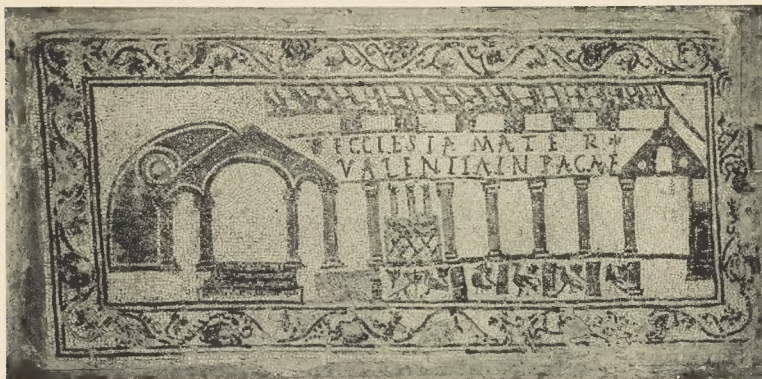 ECCLESIA MATER
VALENTIA IN PACAE